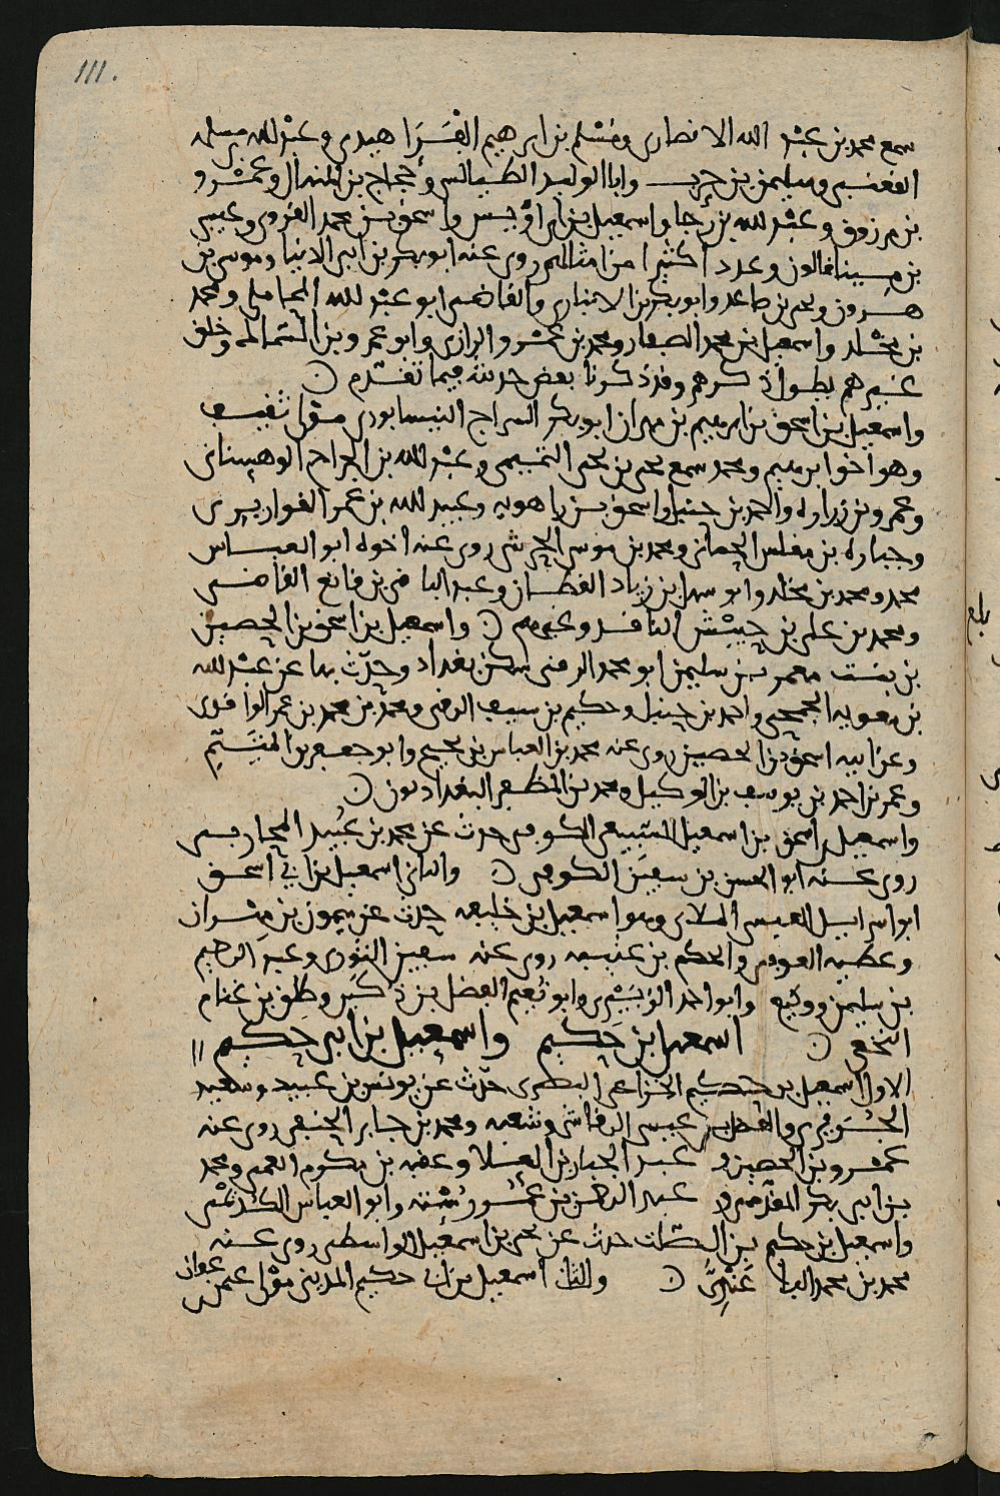 111.
سمع محمد بن عبد الله الانصارى ومسلم بن ابرهيم الفراهيدى وعبد الله بن مسلمه
القعنبى وسليمن بن حرب وابا الوليد الطيالسى وحجاج بن المنهال وعمرو
بن مرزوق وعبد الله بن رجا واسمعيل بن ابى اويس واسحق بن محمد الفروى وعيسى
بن مينا قالون وعددا كثيرا من امثالهم روى عنه ابو بكر بن ابى الدنيا وموسى بن
هرون ويحيى بن صاعد وابو بكر بن الانبارى والقاضى ابو عبد الله المحاملى ومحمد
بن مخلد واسمعيل بن محمد الصفار ومحمد بن عمرو الرازى وابو عمرو بن السماك وخلق
غيرهم يطول ذكرهم وقد ذكرنا بعض حديثه فيما تقدم
واسمعيل بن اسحق بن ابرهيم بن مهران ابو بكر السراج النيسابورى مولى ثقيف
وهو اخو ابرهيم ومحمد سمع يحيى بن يحيى التميمى وعبد الله بن الجراح القهستانى
وعمرو بن زراره واحمد بن حنبل واسحق بن راهويه وعبيد الله بن عمر القواريرى
وجباره بن مغلس الحمانى ومحمد بن موسى الحرشى روى عنه اخوه ابو العباس
محمد ومحمد بن مخلد وابو سهل بن زياد القطان وعبد الباقى بن قانع القاضى
ومحمد بن على بن حبيش الناقد وغيرهم واسمعيل بن اسحق بن الحصين
بن بنت معمر بن سليمن ابو محمد الرقى سكن بغداد وحدث بها عن عبد الله
بن معويه الجمحى واحمد بن حنبل وحكيم بن سيف الرقى ومحمد بن محمد بن عمر الواقدى
وعن ابيه اسحق بن الحصين روى عنه محمد بن العباس بن نجيح وابو جعفر بن المتيم
وعمر بن احمد بن يوسف بن الوكيل ومحمد بن المظفر البغداديون
واسمعيل بن اسحق بن اسمعيل السبيعى الكوفى حدث عن محمد بن عبيد المحاربى
روى عنه ابو الحسن بن سفين الكوفى والثانى اسمعيل بن ابى اسحق
ابو اسرايل العبسى الملاى وهو اسمعيل بن خليفه حدث عن ميمون بن مهران
وعطيه العوفى والحكم بن عتيبه روى عنه سفين الثورى وعبد الرحيم
بن سليمن ووكيع وابو احمد الزبيرى وابو نعيم الفضل بن دكين وطلق بن غنام
النخعى اسمعيل بن حكيم واسمعيل بن ابى حكيم
الاول اسمعيل بن حكيم الخزاعى البصرى حدث عن يونس بن عبيد وسعيد
الجريرى والفضل بن عيسى الرقاشى وشعبه ومحمد بن جابر الحنفى روى عنه
عمرو بن الحصين وعبد الجبار بن العلا وعقبه بن مكرم العمى ومحمد
بن ابى بكر المقدمى وعبد الرحمن بن عمرو رسته وابو العباس الكديمى
واسمعيل بن حكيم بن الصلت حدث عن يحيى بن اسمعيل الواسطى روى عنه
محمد بن محمد الباغندى والثانى اسمعيل بن ابى حكيم المدينى مولى عثمن بن عفان